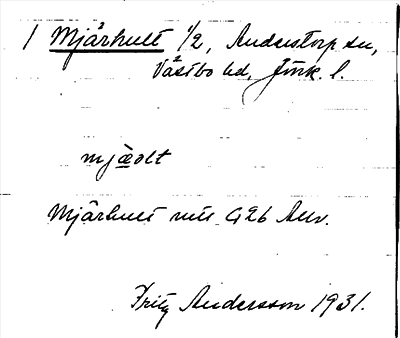 1 Mjärhult 1/2, Anderstorp sn,
Västbo hd, Jönk. l.
mjæolt
Mjärhult 426
Fritz Andersson 1931.